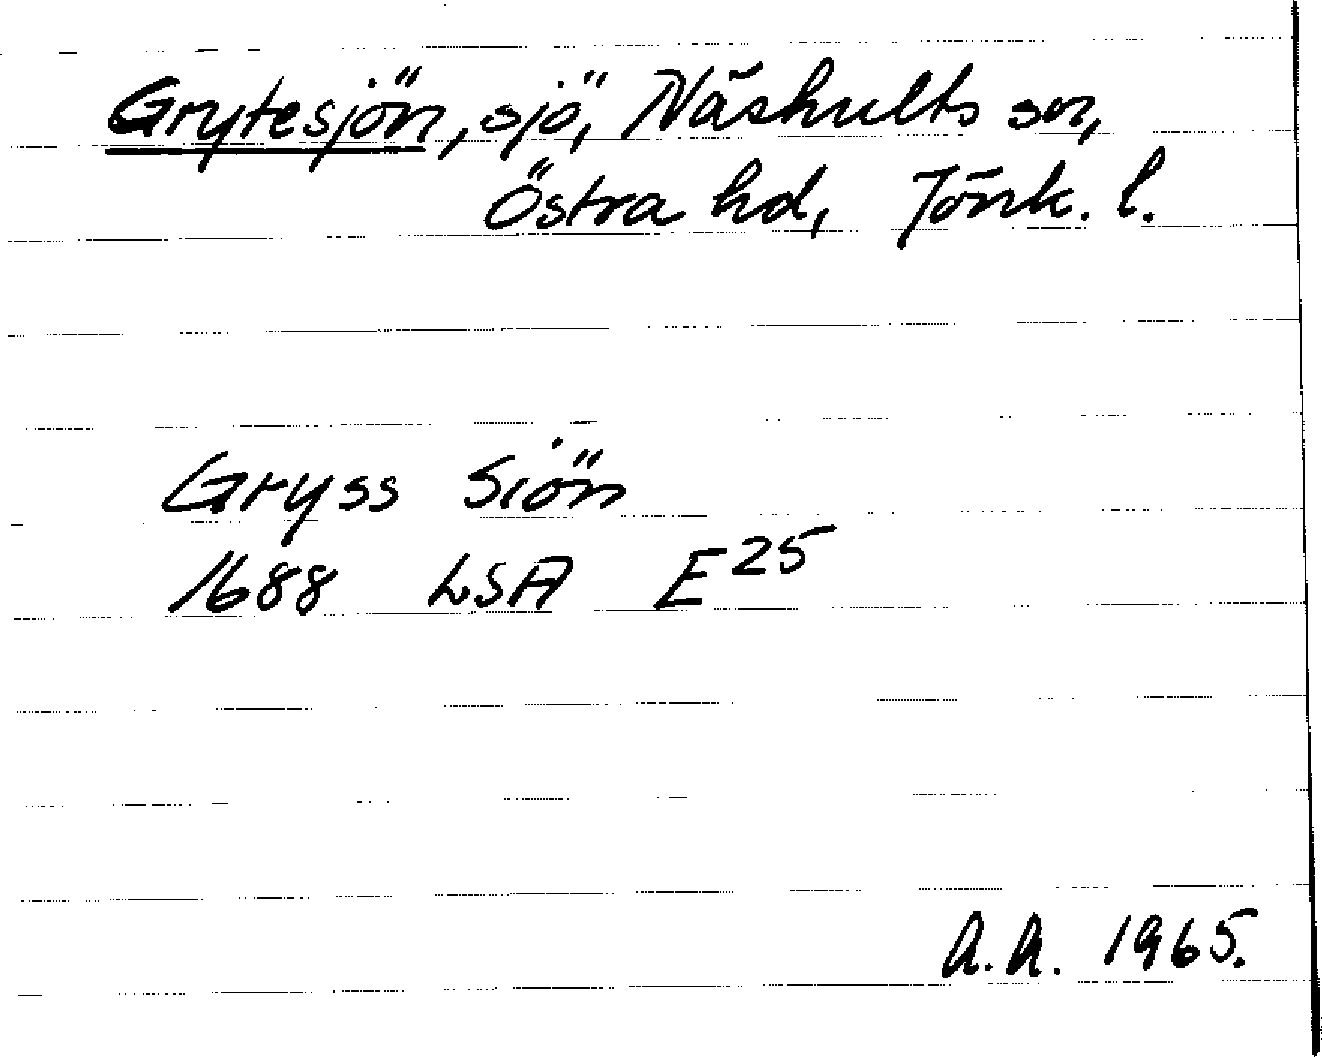 Grytesjön, sjö, Näshults sn,
Östra hd, Jönk. l.
Gryss Siön
1688 LSA E25
A.A. 1965.